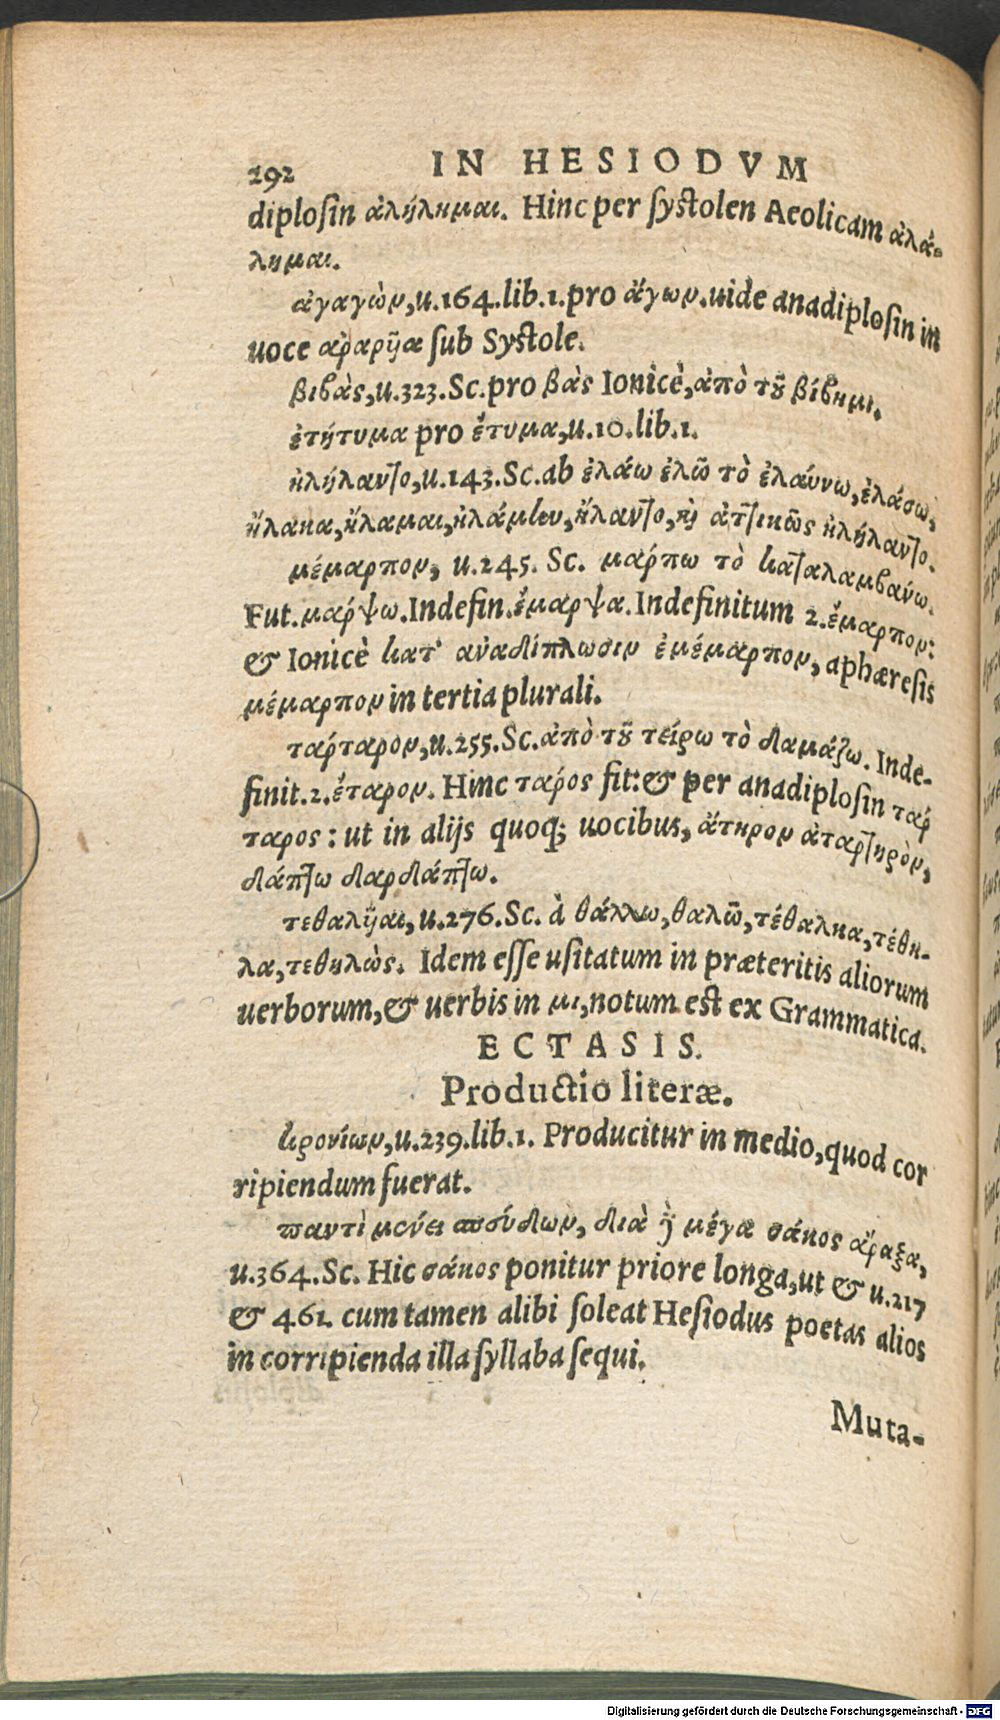 292 IN HESIODVM
diplosin ἀλήλημαι. Hinc per systolen Aeolicam ἀλά-
λημαι.
ἀγαγὼν, u.164. lib.1. pro ἄγων. uide anadiplosin in
uoce ἀραρῆα sub Systole.
βιβὰς, u.323. Sc. pro βὰς Ionicè, ἀπὸ τοῦ βίβημι.
ἐτήτυμα pro ἔτυμα, u.10. lib.1.
ἠλήλαντο, u.143. Sc. ab ἐλάω ἐλῶ τὸ ἐλαύνω, ἐλάσω,
ἤλακα, ἤλαμαι, ἠλάμην, ἤλαντο, καὶ ἀττικῶς ἠλήλαντο.
μέμαρπον, u.245. Sc. μάρπω τὸ καταλαμβάνω.
Fut. μάρψω. Indefin. ἔμαρψα. Indefinitum 2. ἔμαρπον:
& Ionicè κατ' ἀναδίπλωσιν ἐμέμαρπον, aphæresis
μέμαρπον in tertia plurali.
τάρταρον, u.255. Sc. ἀπὸ τοῦ τείρω τὸ δαμάζω. Inde-
finit. 2. ἔταρον. Hinc ταρός fit: & per anadiplosin τάρ
ταρος: ut in alijs quoq; uocibus, ἄτηρον ἀταρτηρὸν,
δάπτω δαρδάπτω.
τεθαλῆαι, u.276. Sc. à θάλλω, θαλῶ, τέθαλκα, τέθη-
λα, τεθηλὼς. Idem esse usitatum in præteritis aliorum
uerborum, & uerbis in μι, notum est ex Grammatica.
ECTASIS.
Productio literæ.
κρονίων, u.239. lib.1. Producitur in medio, quod cor
ripiendum fuerat.
παντὶ μένει σπεύδων, διὰ δὲ μέγα σάκος ἄραξα,
u.364. Sc. Hic σάκος ponitur priore longa, ut & u.217
& 461. cum tamen alibi soleat Hesiodus poetas alios
in corripienda illa syllaba sequi.
Muta-
Digitalisierung gefördert durch die Deutsche Forschungsgemeinschaft - DFG